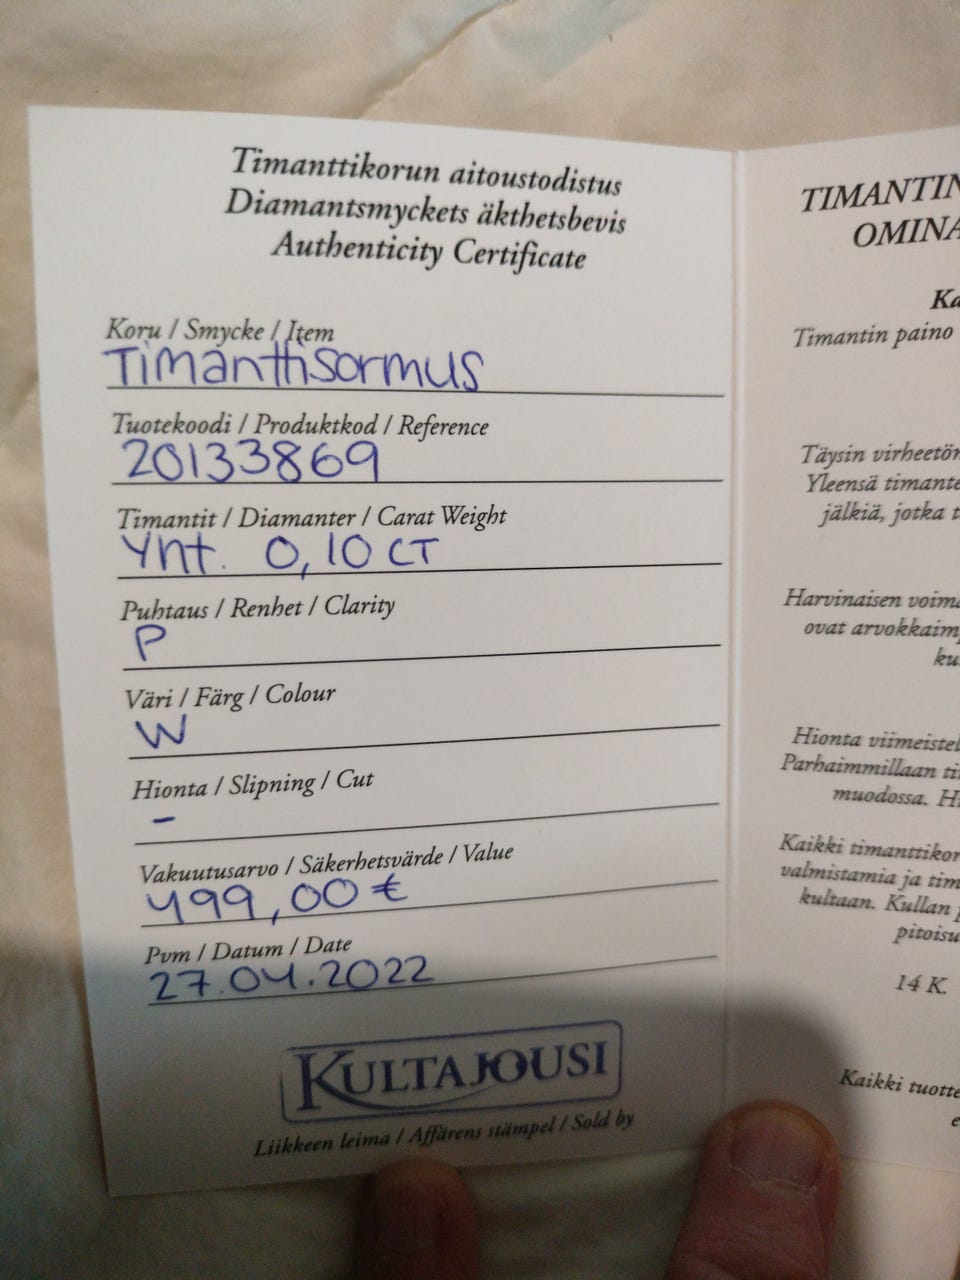 Timanttikorun aitoustodistus
Diamantsmyckets äkthetsbevis
Authenticity Certificate
Koru / Smycke / Item
Timanttisormus
Tuotekoodi / Produktkod / Reference
20133869
Timantit / Diamanter / Carat Weight
Yht. 0,10 CT
Puhtaus / Renhet / Clarity
P
Väri / Färg / Colour
W
Hionta / Slipning / Cut
-
Vakuutusarvo / Säkerhetsvärde / Value
499,00 €
Pvm / Datum / Date
27.04.2022
KULTAJOUSI
Liikkeen leima / Affärens stämpel / Sold by
TIMANTIN
OMINA
Ka
Timantin paino
Täysin virheetön
Yleensä timante
jälkiä, jotka t
Harvinaisen voima
ovat arvokkaimp
ku
Hionta viimeistel
Parhaimmillaan ti
muodossa. Hi
Kaikki timanttikor
valmistamia ja tim
kultaan. Kullan p
pitoisu
14 K.
Kaikki tuotte
e